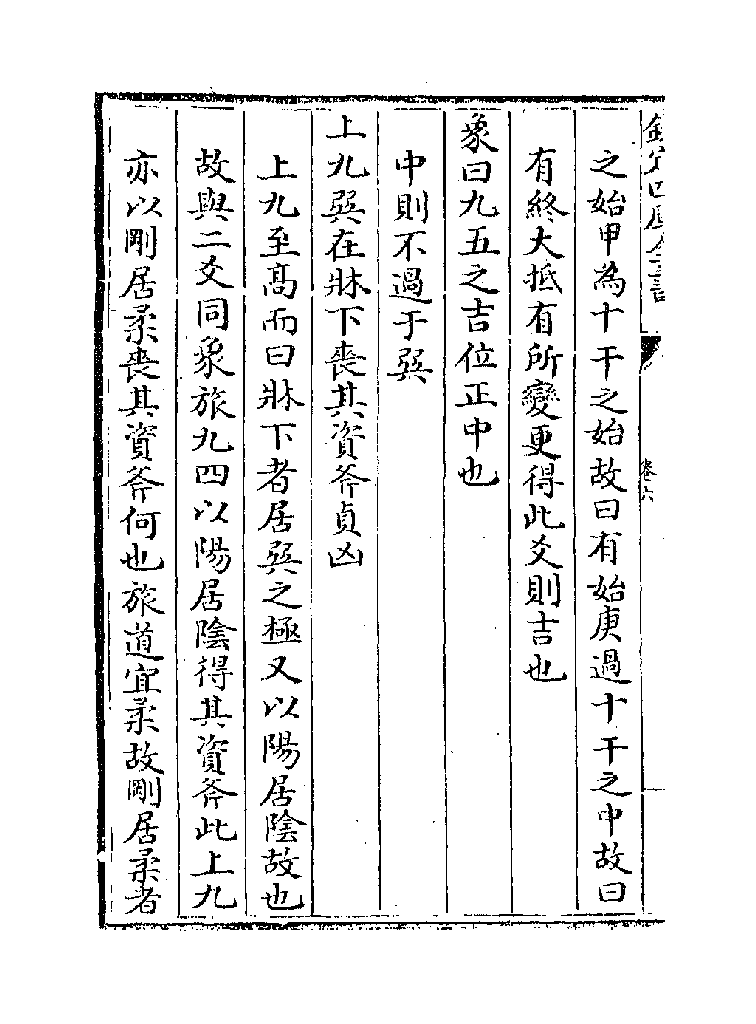 欽定四庫全書
卷六
之始甲為十干之始故曰有始庚過十干之中故曰
有終大抵有所變更得此爻則吉也
象曰九五之吉位正中也
中則不過于巽
上九巽在牀下喪其資斧貞凶
上九至髙而曰牀下者居巽之極又以陽居陰故也
故與二爻同象旅九四以陽居陰得其資斧此上九
亦以剛居柔喪其資斧何也旅道宜柔故剛居柔者